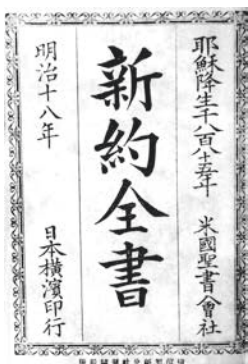 耶穌降生千八百八十五年 米國聖書會社
新約全書
明治十八年 日本橫濱印行